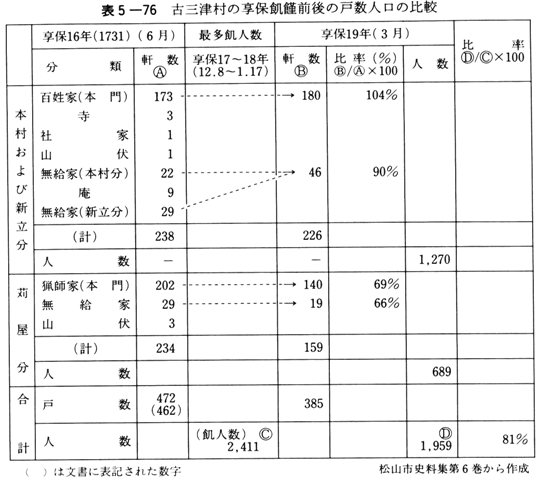 表5—76 古三津村の享保飢饉前後の戸数人口の比較
享保16年(1731)(6月) 最多飢人数 享保19年(3月) 比率
分類 軒数 享保17～18年 軒数 比率(%) 人数 Ⓓ/Ⓒ×100
Ⓐ (12.8～1.17) Ⓑ Ⓑ/Ⓐ×100
本村および新立分
百姓家(本門) 173 180 104%
寺 3
社家 1
山伏 1
無給家(本村分) 22 46 90%
庵 9
無給家(新立分) 29
(計) 238 226
人数 － － 1,270
苅屋分
猟師家(本門) 202 140 69%
無給家 29 19 66%
山伏 3
(計) 234 159
人数 689
合計
戸数 472 385
(462)
人数 (飢人数)Ⓒ Ⓓ 81%
2,411 1,959
( )は文書に表記された数字 松山市史料集第6巻から作成